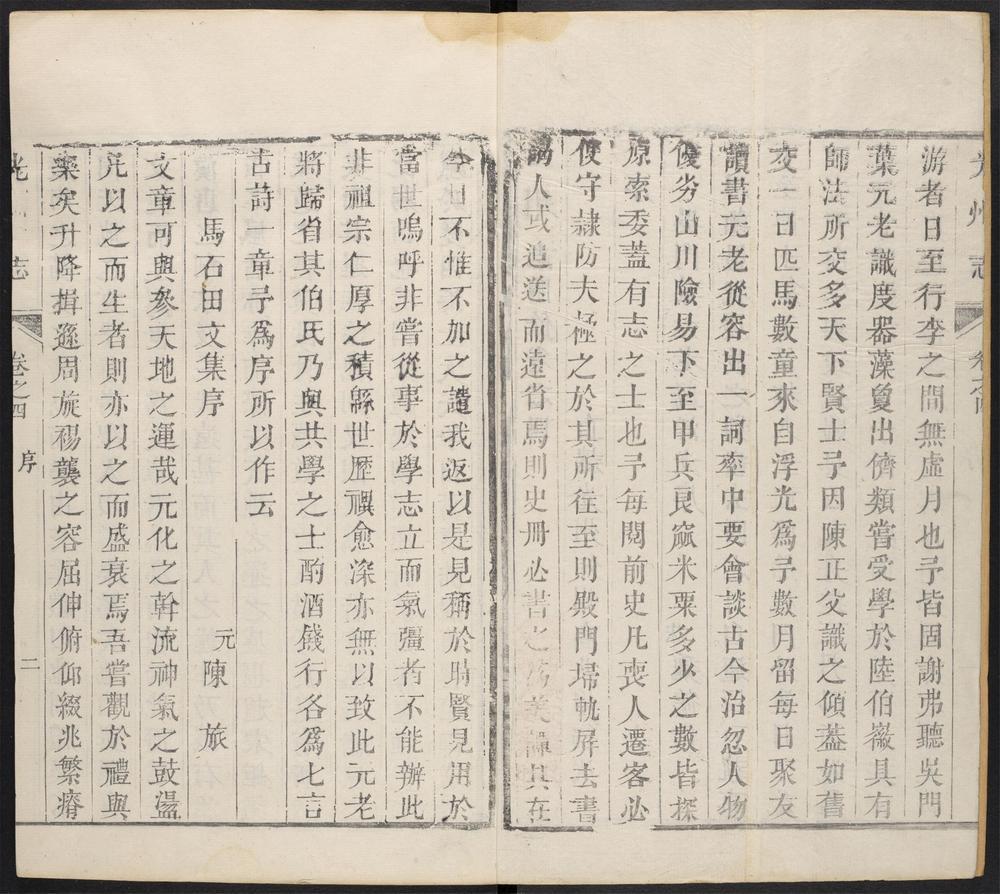 光州志
卷之四
游者日至行李之間無虛月也予皆固謝弗聽吳門
葉元老識度器藻夐出儕類嘗受學於陸伯薇具有
師法所交多天下賢士予因陳正父識之傾蓋如舊
交一日匹馬數童來自浮光為予數月留每日聚友
讀書元老從容出一詞率中要會談古今治忽人物
優劣山川險易下至甲兵良窳米粟多少之數皆探
原索委蓋有志之士也予每閱前史凡喪人遷客必
使守隷防夫極之於其所往至則殿門埽軌屏去書
謁人或追送而遠省焉則史冊必書之為美譚其在
今日不惟不加之譴我返以是見稱於時賢見用於
當世嗚呼非嘗從事於學志立而氣彊者不能辦此
非祖宗仁厚之積緜世歷禩愈深亦無以致此元老
將歸省其伯氏乃與共學之士酌酒餞行各為七言
古詩一章予為序所以作云
馬石田文集序
元陳旅
文章可與參天地之運哉元化之幹流神氣之鼓盪
凡以之而生者則亦以之而盛衰焉吾嘗觀於禮與
樂矣升降揖遜周旋裼襲之容屈伸俯仰綴兆繁瘠
光 志
卷之四
序
二